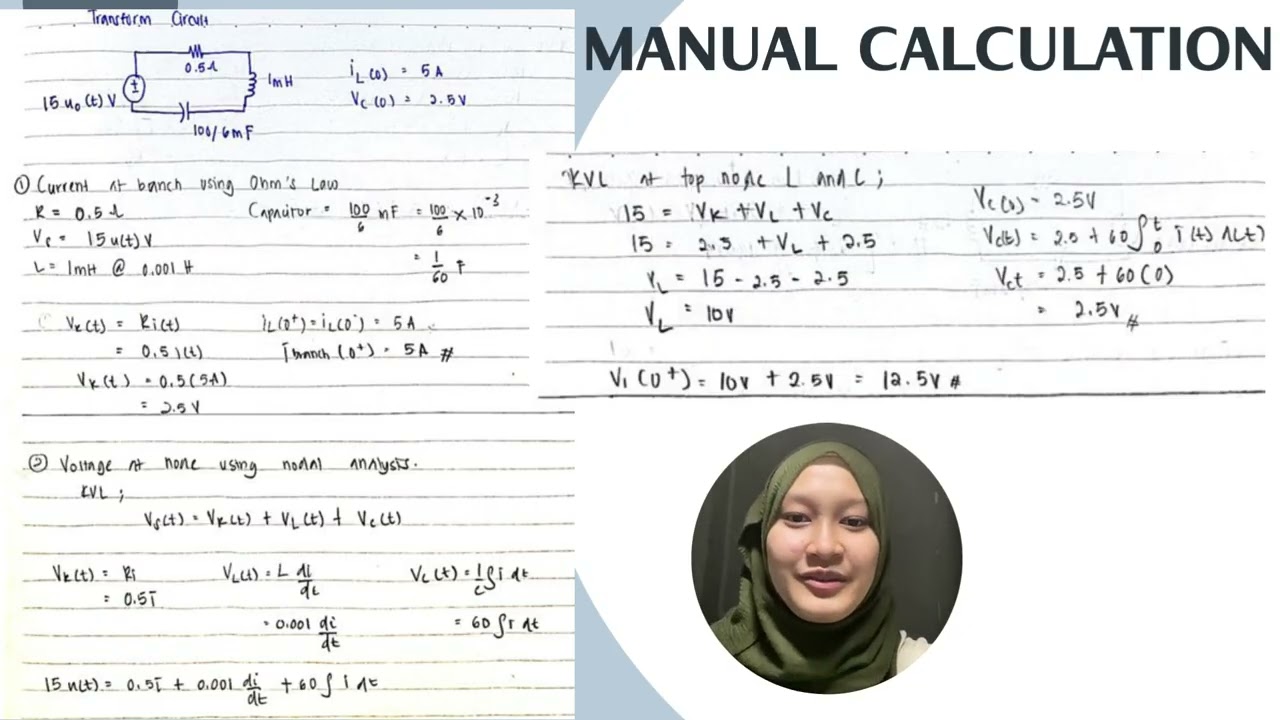 MANUAL CALCULATION
Transform Circuit
0.5Ω
1mH
15 u₀(t) V
100/6mF
i_L(0) = 5A
V_C(0) = 2.5V
① Current at branch using Ohm's Law
R = 0.5 Ω
Capacitor = 100/6 mF = 100/6 × 10⁻³
V_s = 15u(t) V
L = 1mH @ 0.001 H
= 1/60 F
V_R(t) = Ri(t)
i_L(0⁺) = i_L(0⁻) = 5A
= 0.5i(t)
I branch (0⁺) = 5A #
V_R(t) = 0.5(5A)
= 2.5V
② Voltage at node using nodal analysis.
KVL ;
V_s(t) = V_R(t) + V_L(t) + V_C(t)
V_R(t) = Ri
V_L(t) = L di/dt
V_C(t) = 1/C ∫ i dt
= 0.5i
= 0.001 di/dt
= 60 ∫ i dt
15 u(t) = 0.5i + 0.001 di/dt + 60 ∫ i dt
KVL at top node L and C ;
15 = V_R + V_L + V_C
15 = 2.5 + V_L + 2.5
V_L = 15 - 2.5 - 2.5
V_L = 10V
V_C(0) = 2.5V
V_C(t) = 2.5 + 60 ∫₀ᵗ i(t) d(t)
V_Ct = 2.5 + 60(0)
= 2.5V #
V₁(0⁺) = 10V + 2.5V = 12.5V #